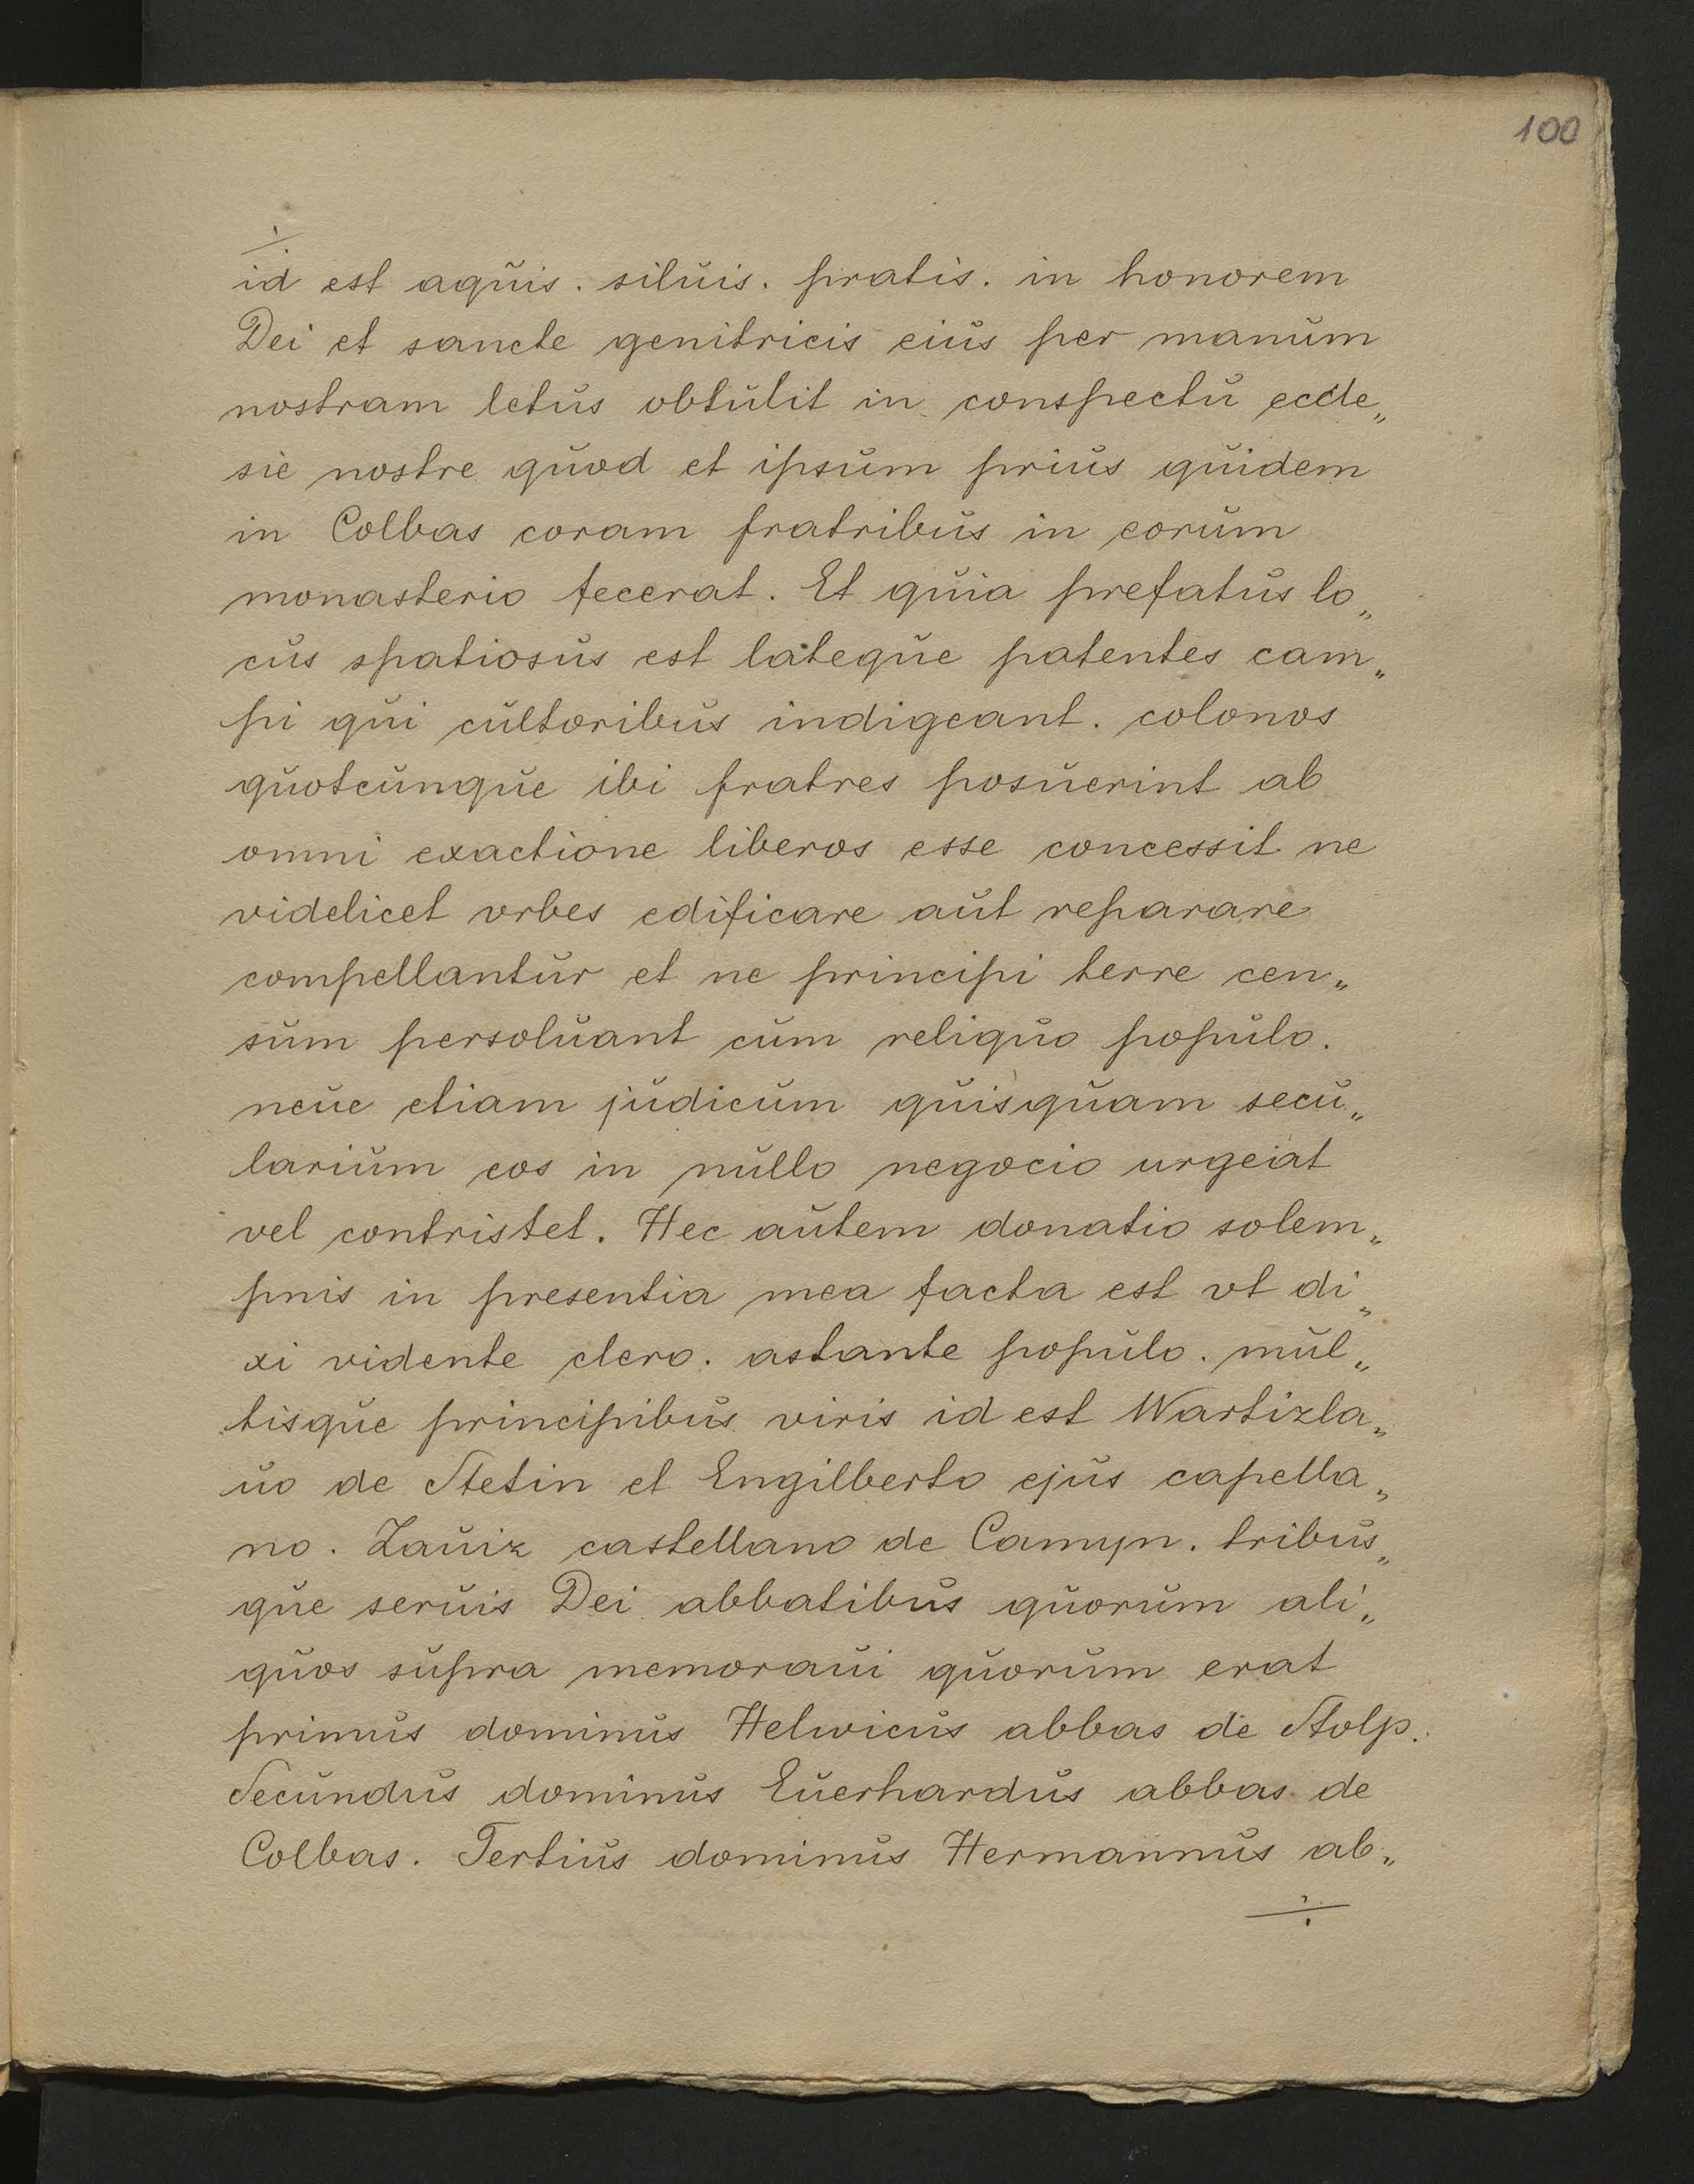 100
÷
id est aquis. siluis. pratis. in honorem
Dei et sancte genitricis eius per manum
nostram letus obtulit in conspectu eccle„
sie nostre quod et ipsum prius quidem
in Colbas coram fratribus in eorum
monasterio fecerat. Et quia prefatus lo„
cus spatiosus est lateque patentes cam„
pi qui cultoribus indigeant. colonos
quotcunque ibi fratres posuerint ab
omni exactione liberos esse concessit ne
videlicet vrbes edificare aut reparare
compellantur et ne principi terre cen„
sum persoluant cum reliquo populo.
neue etiam judicum quisquam secu„
larium eos in nullo negocio urgeat
vel contristet. Hec autem donatio solem„
pnis in presentia mea facta est vt di„
xi vidente clero. astante populo. mul„
tisque principibus viris id est Wartizla„
uo de Stetin et Engilberto ejus capella„
no. Zauiz castellano de Camyn. tribus„
que seruis Dei abbatibus quorum ali„
quos supra memoraui quorum erat
primus dominus Helwicus abbas de Stolp.
Secundus dominus Euerhardus abbas de
Colbas. Tertius dominus Hermannus ab„
÷